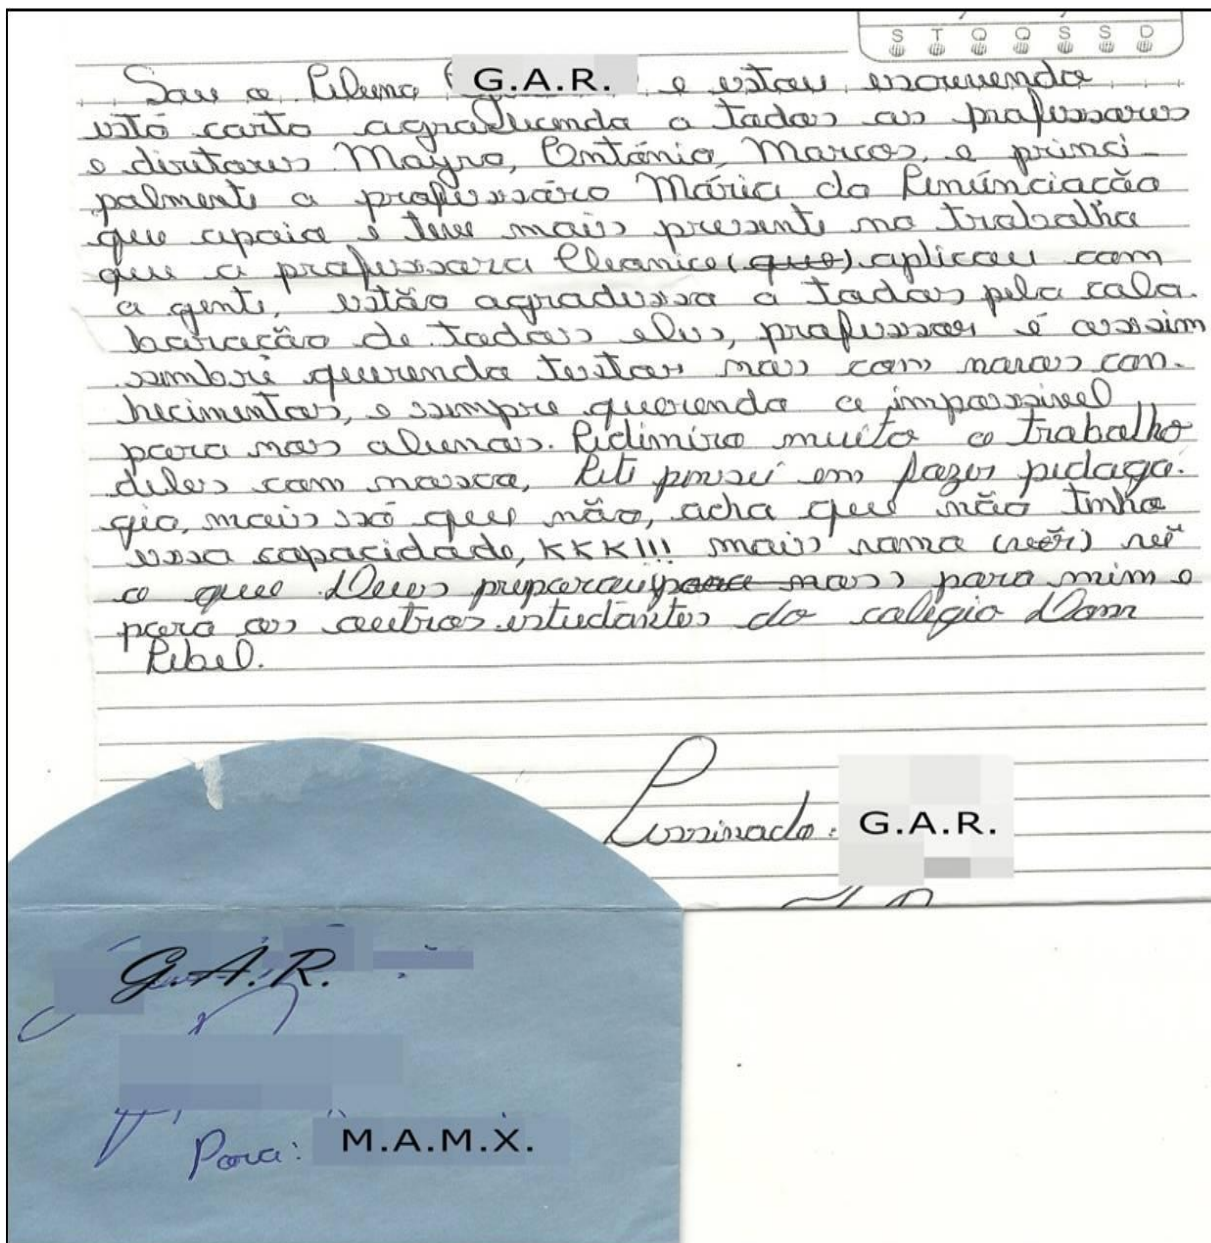 S T Q Q S S D
Sou a Aluna G.A.R. e estou escrevendo
está carta agradecendo a todos os professores
e diretores Mayro, Antônio, Marcos, e princi-
palmente a professóra Mária da Anúnciacão
que apoia e teve mais presente no trabalho
que a professora Cleonice (que) aplicou com
a gente, estão agradessa a todos pela cola.
boração de todos eles, professor é assim
sembre querendo testar nos com novos con-
hecimentos, e sempre querendo o impossivel
para nos alunos. Admiro muito o trabalho
deles com nosco, Ate pensei em fazer pedago.
gia, mais só que não, acha que não tinha
essa capacidade, KKK!!! mais vamo ver
o que Deus preparou para nos para mim e
para os outros estudantes do colégio Dom
Abel.
Assinado: G.A.R.
G.A.R.
Para: M.A.M.X.